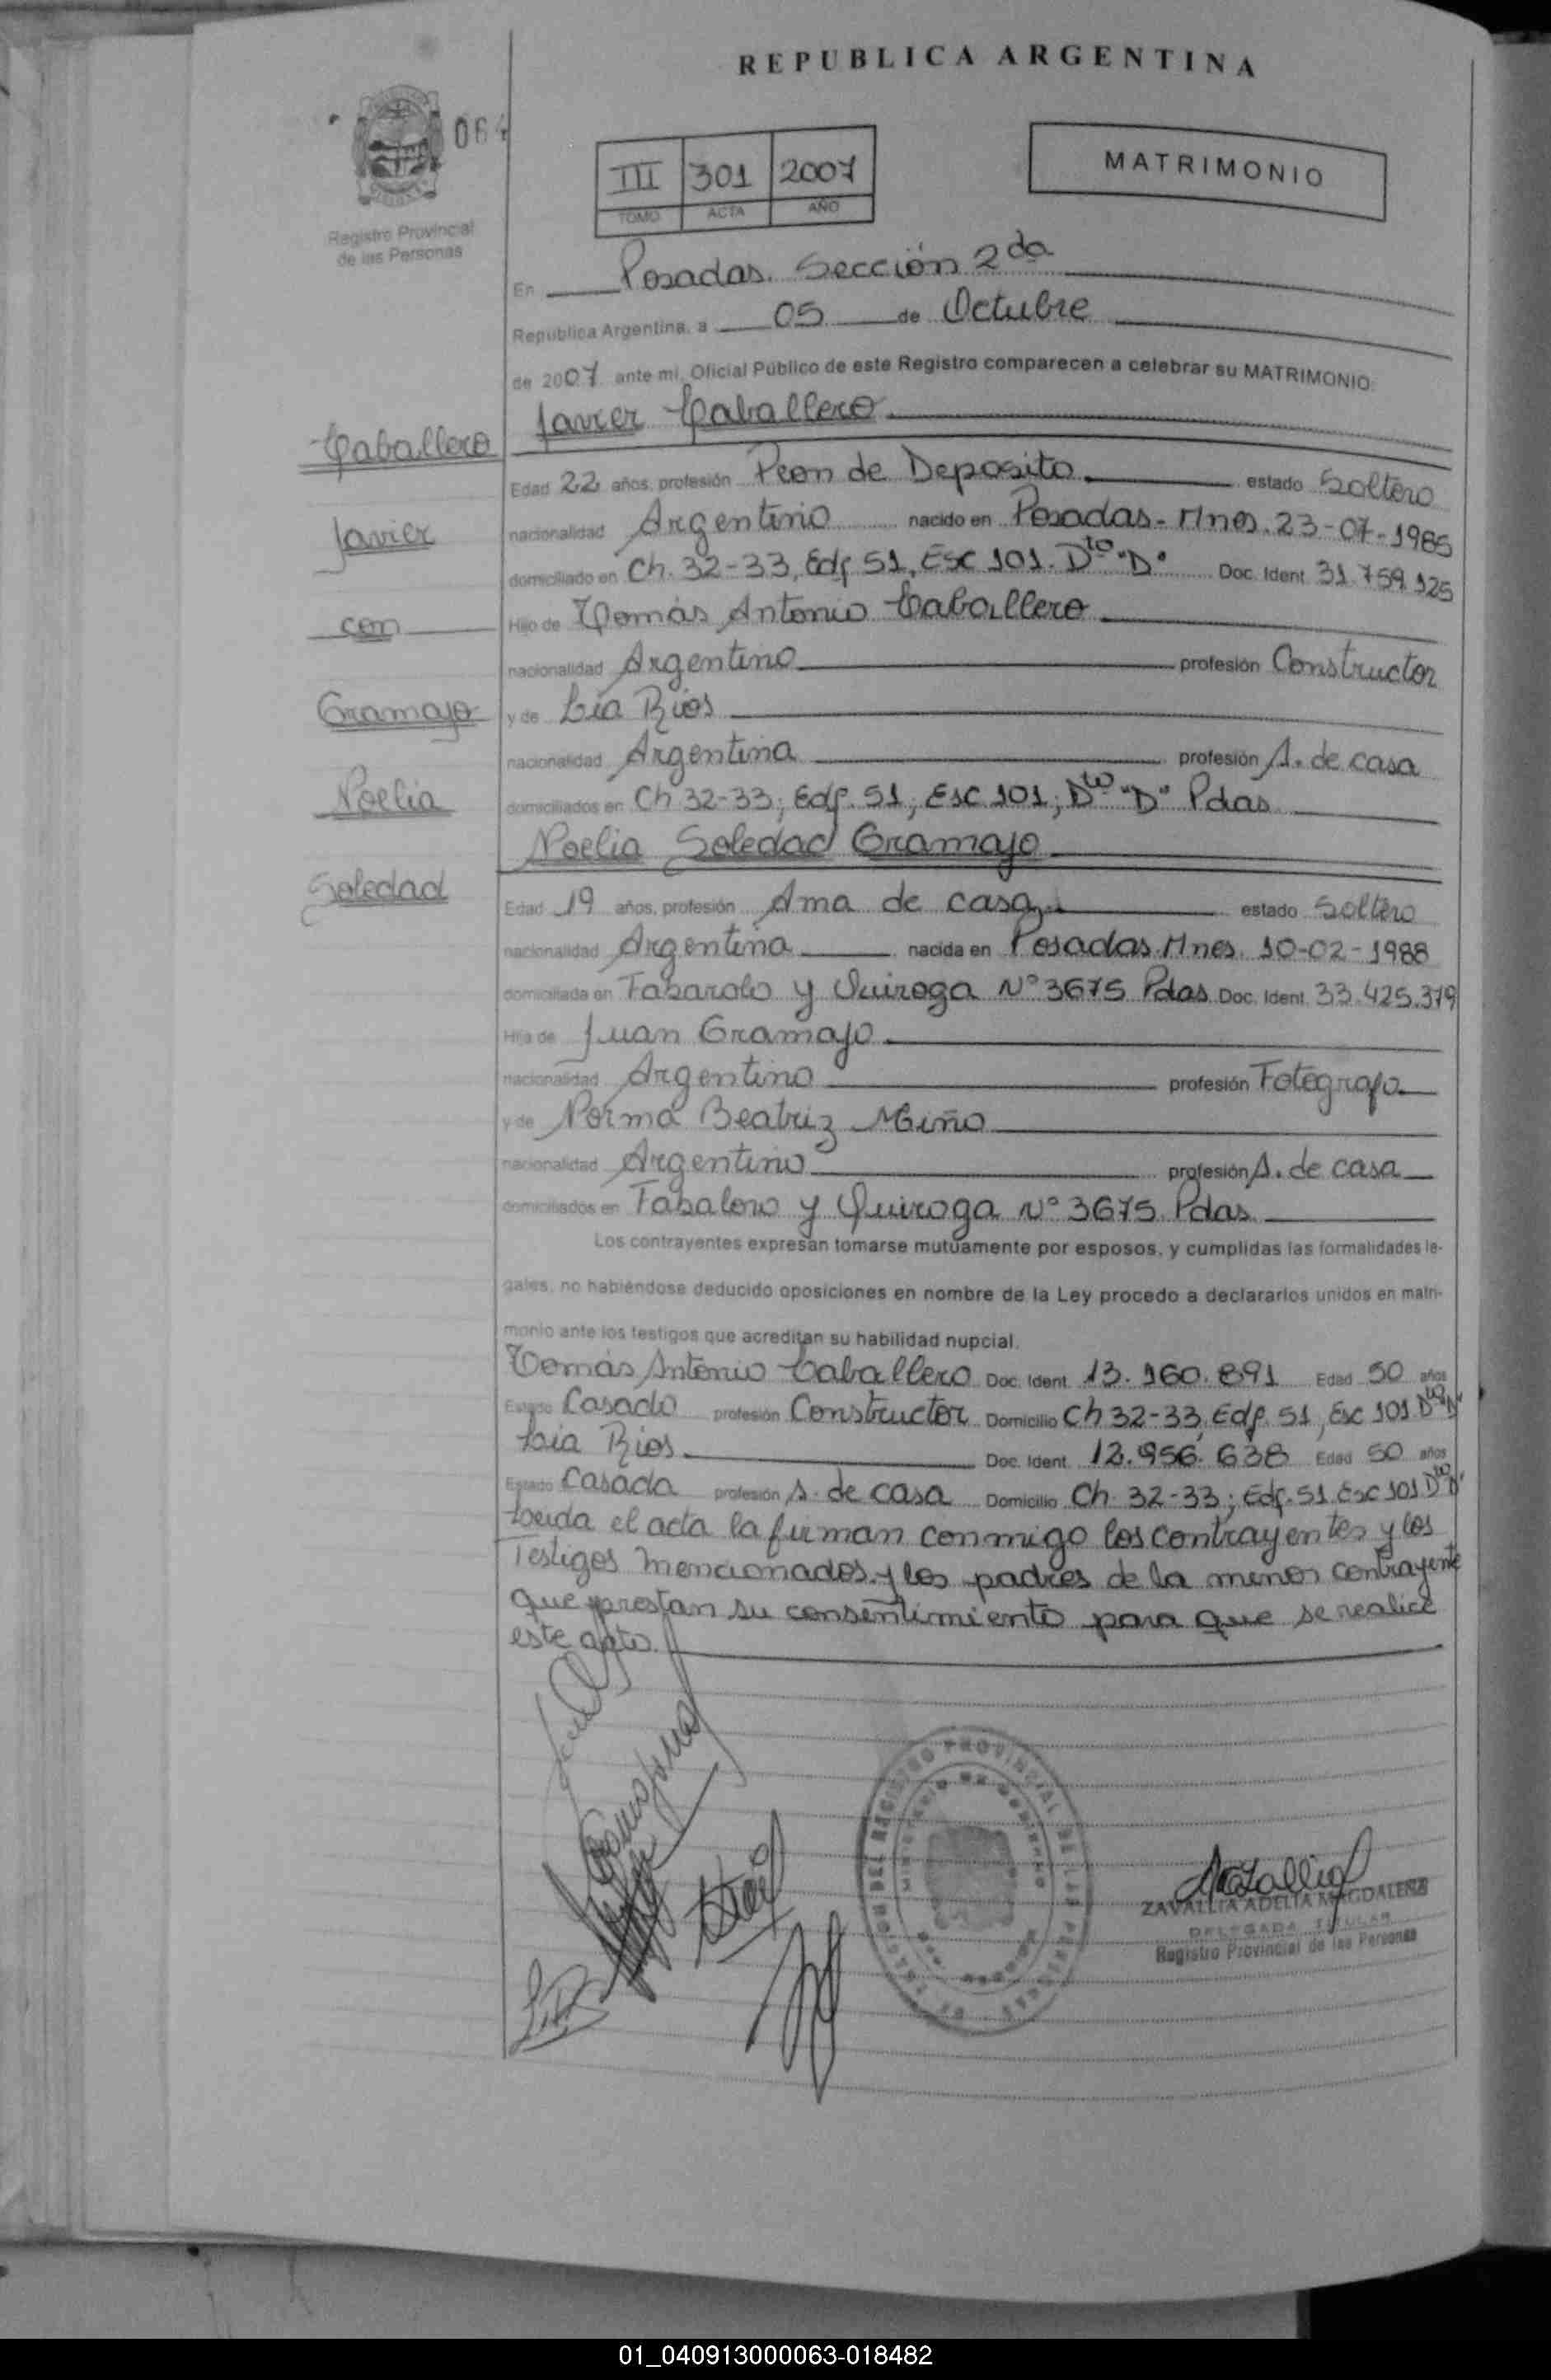 REPUBLICA ARGENTINA
064
III 301 2007
TOMO ACTA AÑO
MATRIMONIO
Registro Provincial
de las Personas
En Posadas. Sección 2da
Republica Argentina, a 05 de Octubre
de 2007 ante mi, Oficial Público de este Registro comparecen a celebrar su MATRIMONIO:
Javier Caballero
Caballero
Javier
con
Gramajo
Noelia
Soledad
Edad 22 años, profesión Peon de Deposito estado Soltero
nacionalidad Argentino nacido en Posadas - Mnes. 23-07-1985
domiciliado en Ch. 32-33, Edf 51, Esc 101. Dto "D" Doc. Ident. 31.759.125
Hijo de Tomás Antonio Caballero
nacionalidad Argentino profesión Constructor
y de Lia Rios
nacionalidad Argentina profesión A. de casa
domiciliados en Ch 32-33; Edf. 51; Esc 101; Dto "D" Pdas
Noelia Soledad Gramajo
Edad 19 años, profesión Ama de casa estado Soltero
nacionalidad Argentina nacida en Posadas. Mnes. 10-02-1988
domiciliada en y Quiroga N° 3675 Pdas Doc. Ident. 33.425.379
Hija de Juan Gramajo
nacionalidad Argentino profesión Fotografo
y de Norma Beatriz Miño
nacionalidad Argentino profesión A. de casa
domiciliados en y Quiroga N° 3675 Pdas
Los contrayentes expresan tomarse mutuamente por esposos, y cumplidas las formalidades le-
gales, no habiéndose deducido oposiciones en nombre de la Ley procedo a declararlos unidos en matri-
monio ante los testigos que acreditan su habilidad nupcial.
Tomás Antonio Caballero Doc. Ident. 13.160.891 Edad 50 años
Estado Casado profesión Constructor Domicilio Ch 32-33, Edf. 51, Esc 101 Dto "D"
Lia Rios Doc. Ident. 12.956.638 Edad 50 años
Estado Casada profesión A. de casa Domicilio Ch. 32-33; Edf. 51 Esc 101 Dto "D"
Leida el acta la firman conmigo los contrayentes y los
Testigos mencionados y los padres de la menor contrayente
que prestan su consentimiento para que se realice
este acto.
REGISTRO PROVINCIAL DE LAS PERSONAS
ZAVALLIA ADELIA MAGDALENA
DELEGADA TITULAR
Registro Provincial de las Personas
01_040913000063-018482